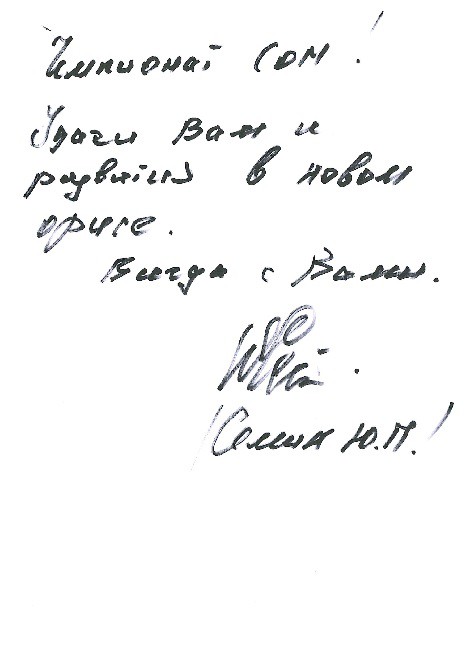 Чемпионат COM!
Удачи Вам и
развития в новом
офисе.
Всегда с Вами.
/Семин Ю.П./